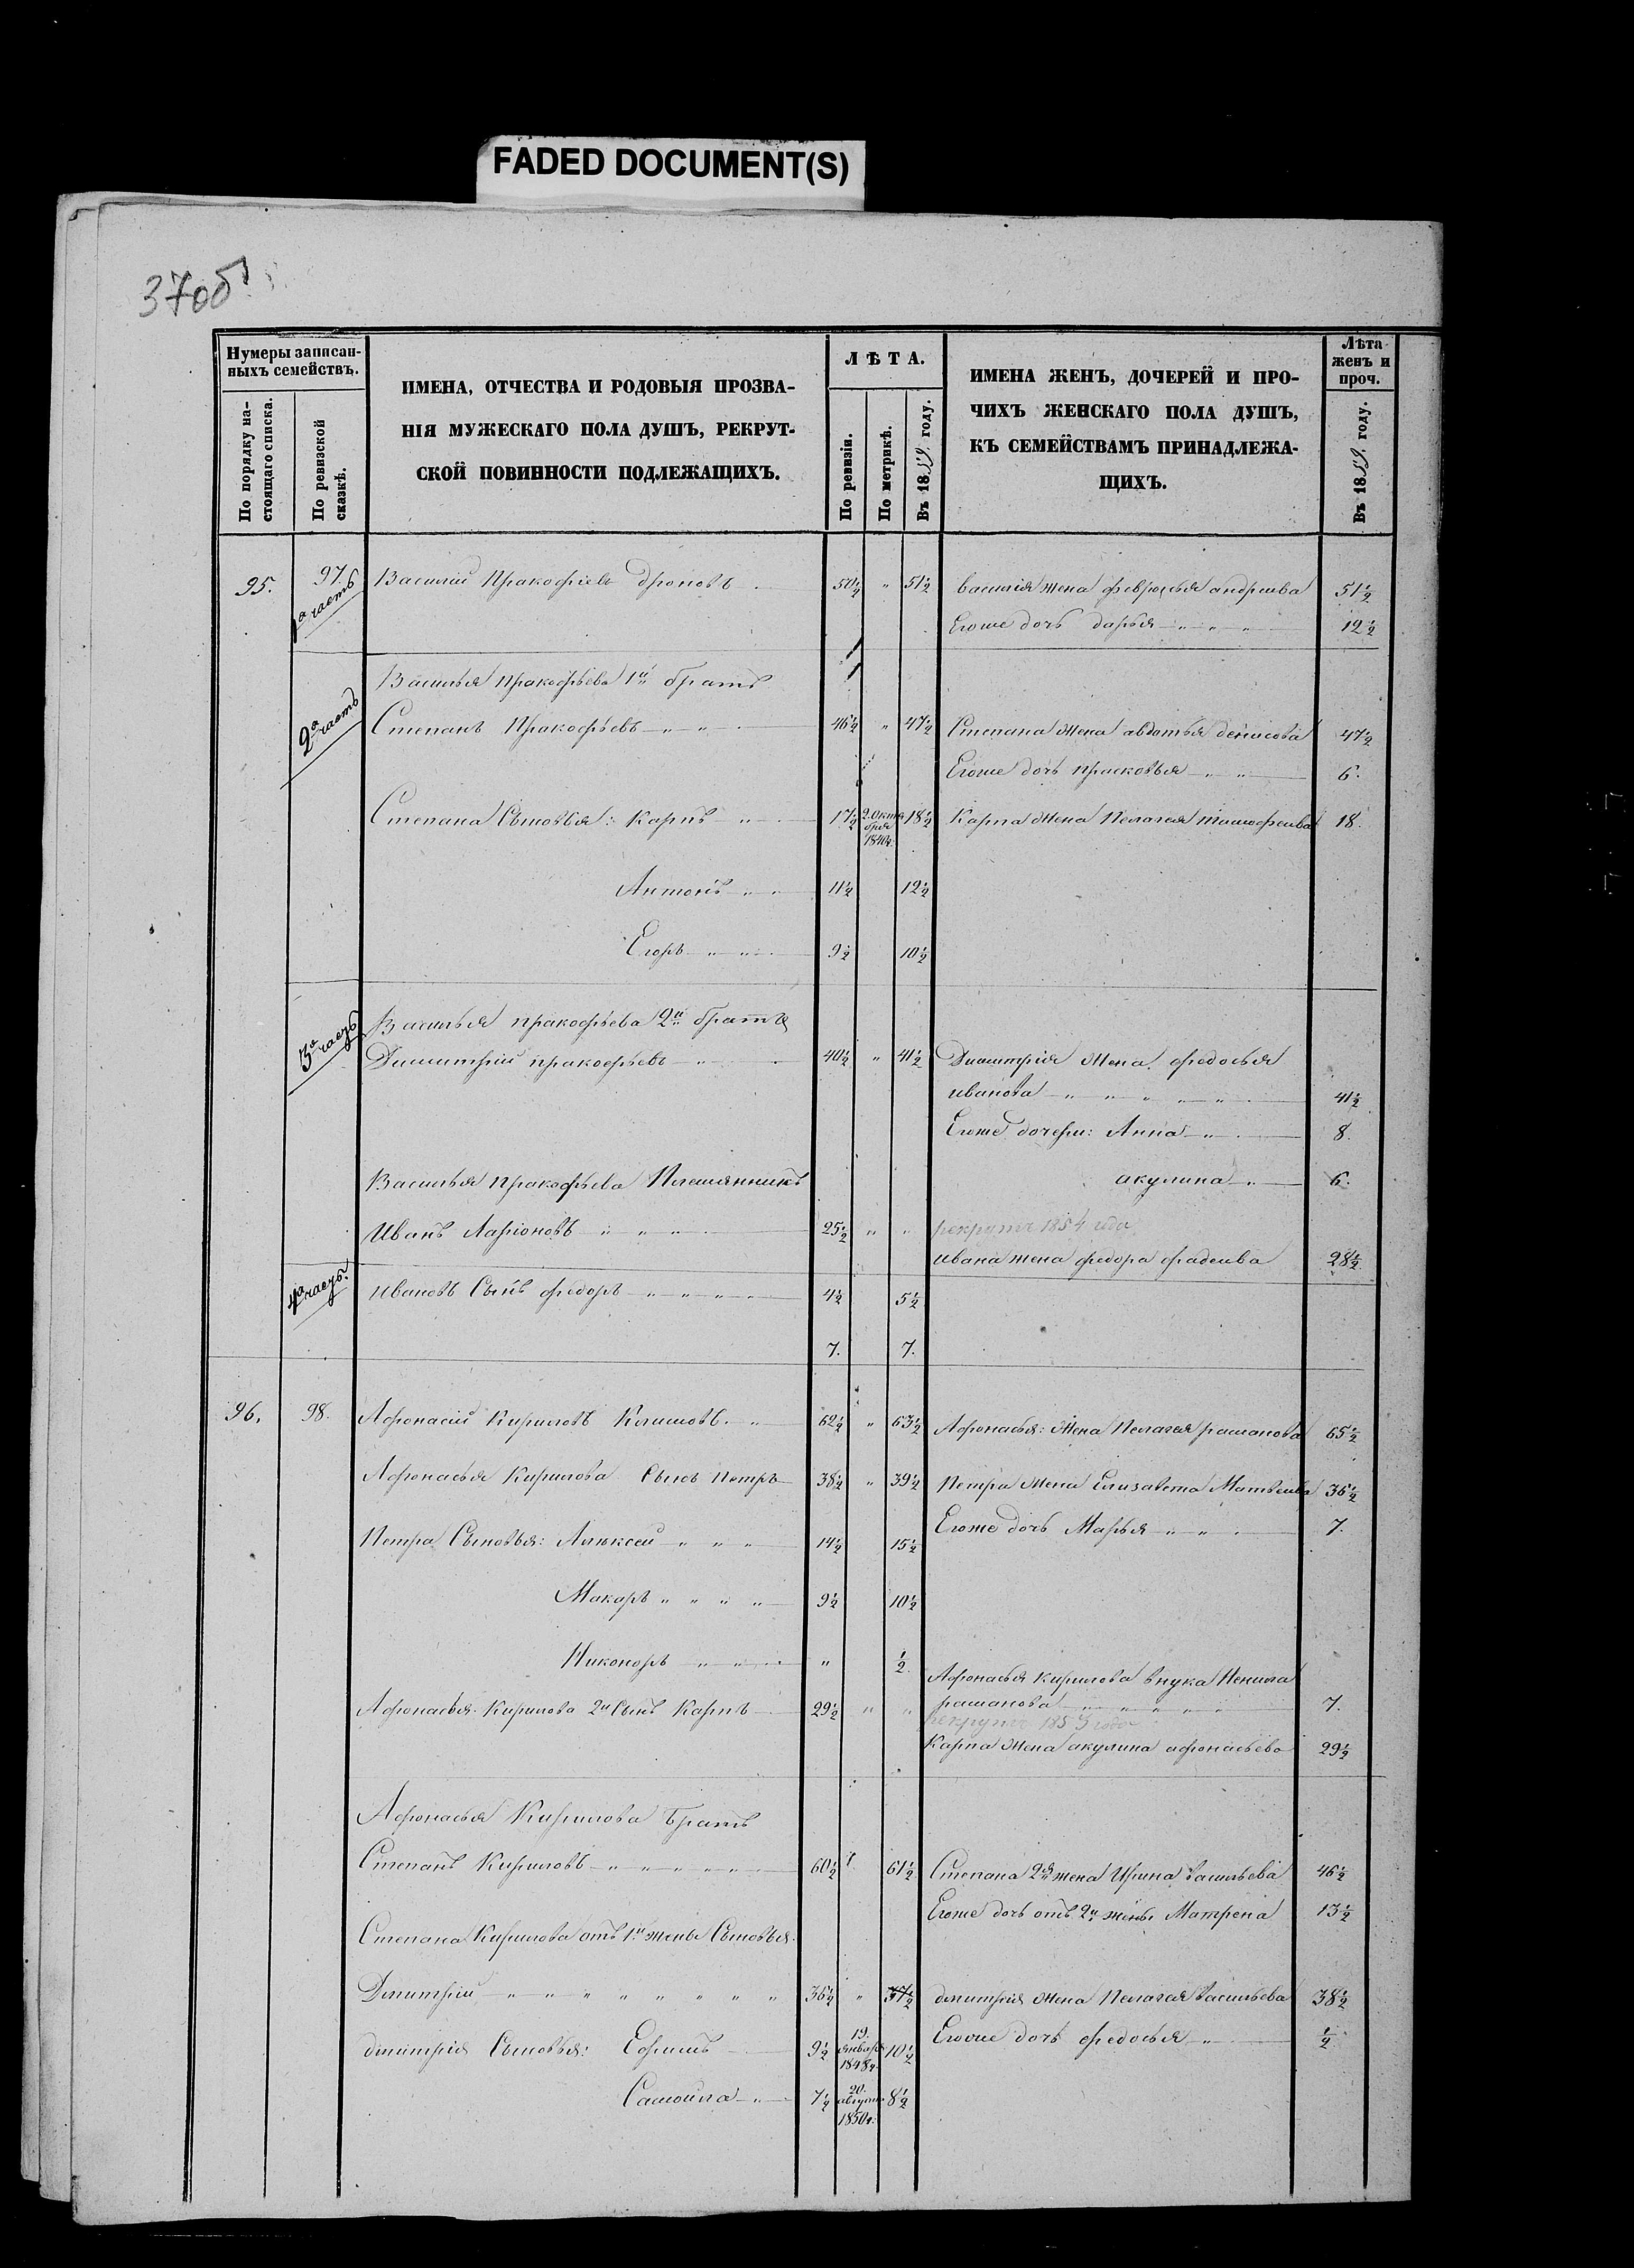 FADED DOCUMENT(S)
370б
Нумеры записан-
ныхъ семействъ.
По порядку на-
стоящаго списка.
По ревизской
сказкѣ.
ИМЕНА, ОТЧЕСТВА И РОДОВЫЯ ПРОЗВА-
НІЯ МУЖЕСКАГО ПОЛА ДУШЪ, РЕКРУТ-
СКОЙ ПОВИННОСТИ ПОДЛЕЖАЩИХЪ.
ЛѢТА.
По ревизіи.
По метрикѣ.
Въ 1859. году.
ИМЕНА ЖЕНЪ, ДОЧЕРЕЙ И ПРО-
ЧИХЪ ЖЕНСКАГО ПОЛА ДУШЪ,
КЪ СЕМЕЙСТВАМЪ ПРИНАДЛЕЖА-
ЩИХЪ.
Лѣта
женъ и
проч.
Въ 1859. году.
95. 97. Василій Пракофіевъ Дроновъ 50½ " 51½ василія жена февросья андреива 51½
1а часть
Егоже дочь дарья " " " 12½
Василья пракофьева 1й братъ
2а часть
Степанъ Пракофьевъ " " 46½ " 47½ Степана жена авдотья денисова 47½
Егоже дочь прасковья " " 6.
Степана Сыновья: Карпъ " 17½ 2. октя бря 1840г. 18½ Карпа жена Пелагея тимофеива 18.
Антонъ " " 11½ 12½
Егоръ " " 9½ 10½
3а часть
Василья пракофьева 2й братъ
Димитрій пракофьевъ " 40½ " 41½ Димитрія жена федосья
иванова " " " " " 41½
Егоже дочери: Анна " 8.
акулина " 6.
Василья пракофьева Племянникъ
Иванъ Ларіоновъ " " " 25½ " " рекрутъ 1854 года
ивана жена федора фадеива 28½
4а часть.
ивановъ Сынъ федоръ " " " " 4½ 5½
7. 7.
96. 98. Афонасій Кириловъ Климовъ. " 62½ " 63½ Афонасья: жена Пелагея раманова 65½
Афонасья Кирилова Сынъ Петръ 38½ " 39½ Петра жена Елизавета Матвеива 36½
Егоже дочь Марья " " 7.
Петра Сыновья: Алюксей " " " 14½ 15½
Макаръ " " " " 9½ 10½
Никоноръ " " " " ½
Афонасья кирилова внука Ненила
раманова " " " " " 7.
Афонасья Кирилова 2й Сынъ Карпъ 29½ " " рекрутъ 1853 года
Карпа жена акулина афонасьева 29½
Афонасья Кирилова Братъ
Степанъ Кириловъ " " " " " " 60½ 61½ Степана 2я жена Ирина васильева 46½
Егоже дочь отъ 2й жены Матрена 13½
Степана Кирилова отъ 1й жены Сыновья.
Дмитрій " " " " " " " " 36½ " 37½ дмитрія жена Пелагея васильева 38½
дмитрія Сыновья: Ефимъ 9½ 19. января 1848г. 10½ Егоже дочь федосья " ½
Самойла " 7½ 20. августа 1850г. 8½